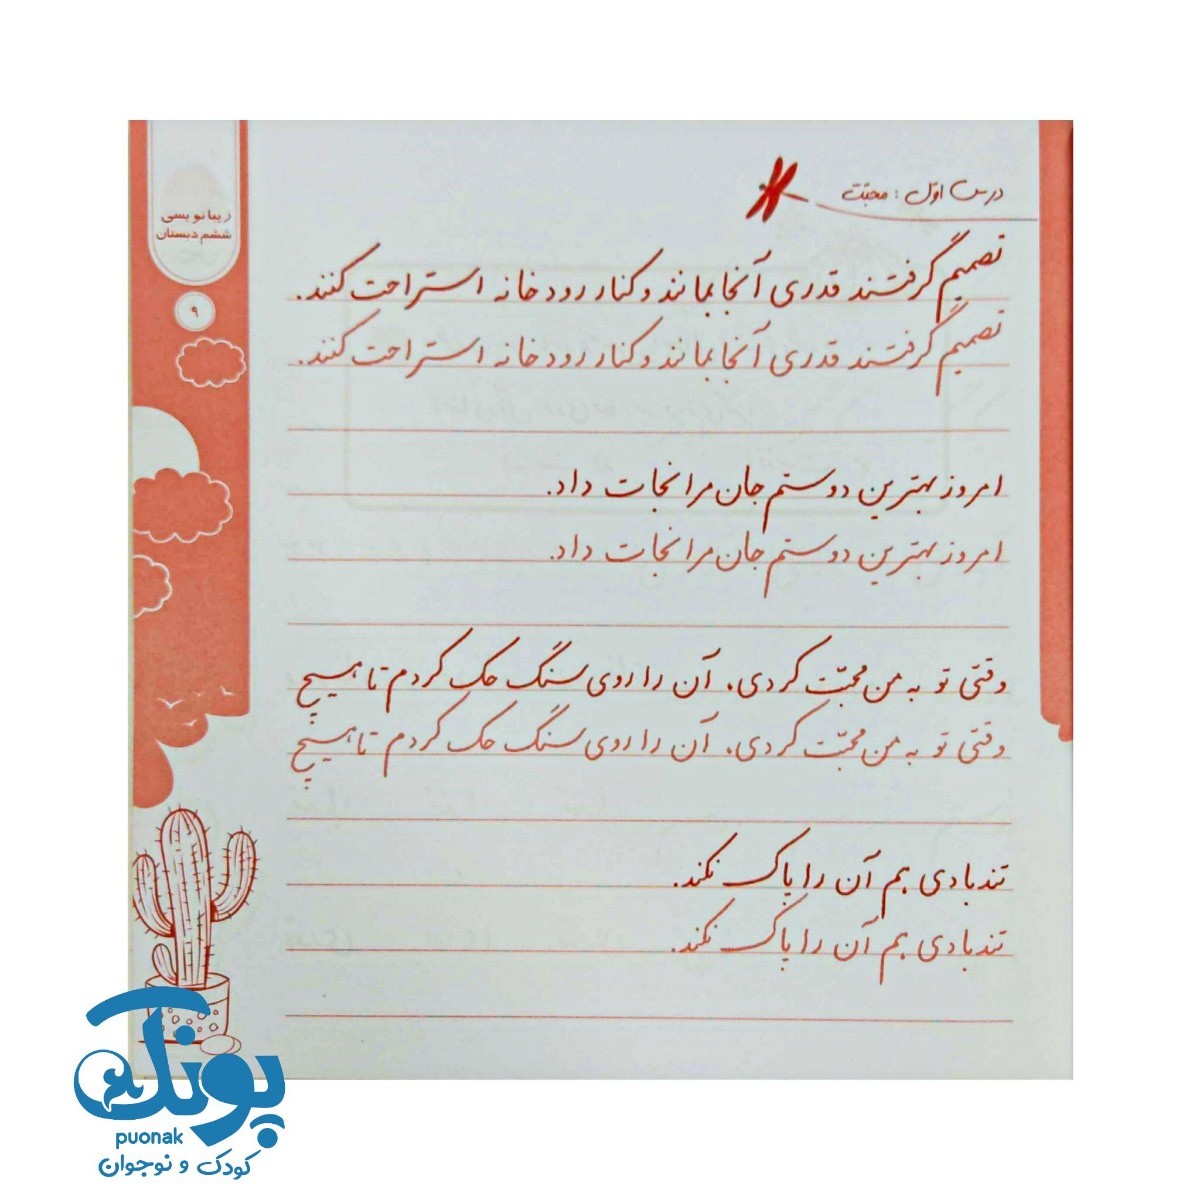 درس اوّل : محبّت
زیبا نویسی
ششم دبستان
۹
تصمیم گرفتند قدری آنجا بمانند و کنار رودخانه استراحت کنند.
تصمیم گرفتند قدری آنجا بمانند و کنار رودخانه استراحت کنند.
امروز بهترین دوستم جان مرا نجات داد.
امروز بهترین دوستم جان مرا نجات داد.
وقتی تو به من محبّت کردی، آن را روی سنگ حک کردم تا هیچ
وقتی تو به من محبّت کردی، آن را روی سنگ حک کردم تا هیچ
تندبادی هم آن را پاک نکند.
تندبادی هم آن را پاک نکند.
پونک
puonak
کودک و نوجوان